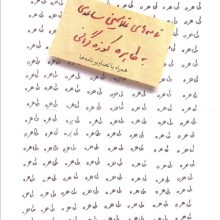 طاهره طاهره طاهره طاهره طاهره طاهره طاهره طاهره
نامه‌های غلامحسین ساعدی
به طاهره کوزه‌گرانی
همراه با تصاویر نامه‌ها
طاهره طاهره طاهره طاهره طاهره طاهره طاهره طاهره
طاهره طاهره طاهره طاهره طاهره طاهره طاهره طاهره
طاهره طاهره طاهره طاهره طاهره طاهره طاهره طاهره
طاهره طاهره طاهره طاهره طاهره طاهره طاهره طاهره
طاهره طاهره طاهره طاهره طاهره طاهره طاهره طاهره
طاهره طاهره طاهره طاهره طاهره طاهره طاهره طاهره
طاهره طاهره طاهره طاهره طاهره طاهره طاهره طاهره